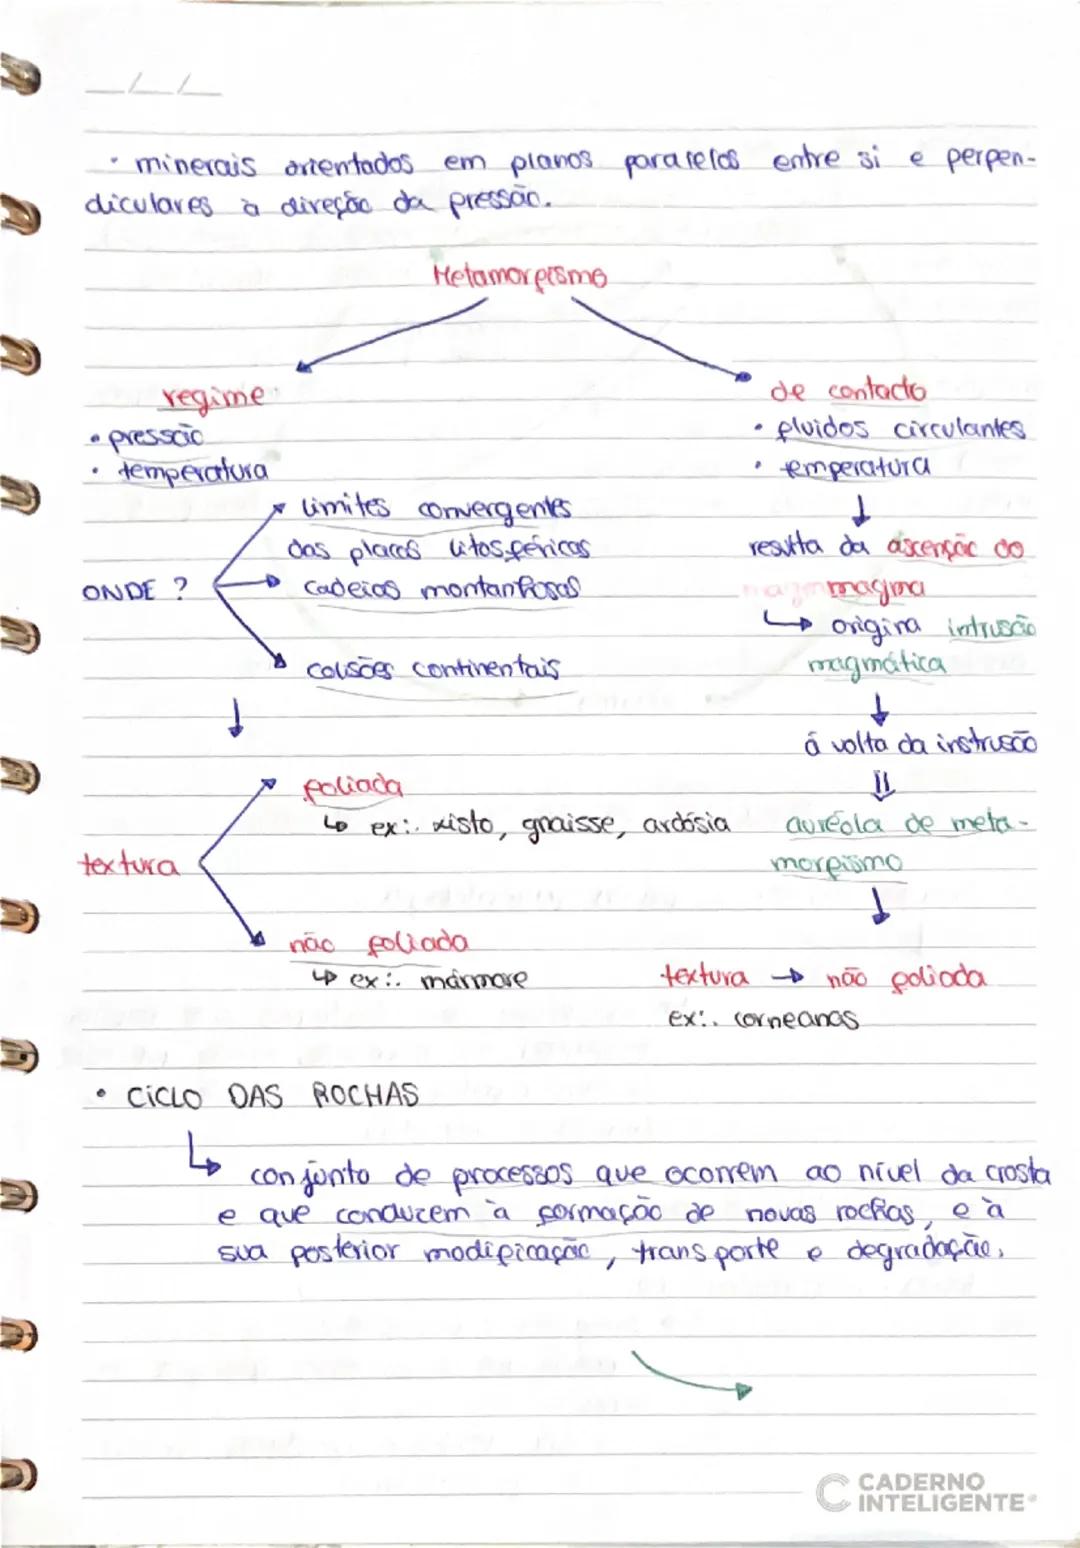 · minerais orientados em planos paralelos entre si e perpen-
diculares à direção da pressão.
Metamorfismo
regime
• pressão
• temperatura
ONDE ?
limites convergentes
das placas litosféricas
cadeias montanhosas
colisões continentais
textura
foliada
ex:. xisto, gnaisse, ardósia
não foliada
ex:. mármore
de contacto
• fluidos circulantes
• temperatura
resulta da ascenção do
magma
origina intrusão
magmática
á volta da instrusão
auréola de meta-
morfismo
textura → não foliada
ex:. corneanas
• CICLO DAS ROCHAS
conjunto de processos que ocorrem ao nível da crosta
e que conduzem à formação de novas rochas, e à
sua posterior modificação, transporte e degradação.
CADERNO
INTELIGENTE